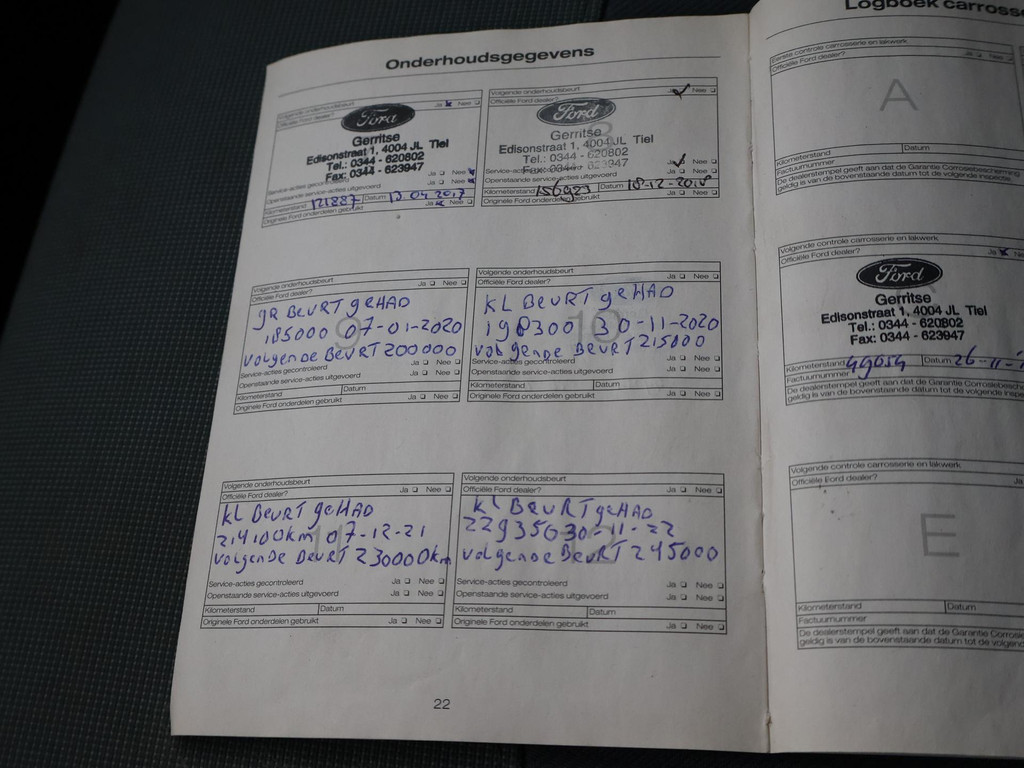 Onderhoudsgegevens
Volgende onderhoudsbeurt Ja Nee
Officiële Ford dealer?
Ford
Gerritse
Edisonstraat 1, 4004 JL Tiel
Tel.: 0344 - 620802
Fax: 0344 - 623947
Service-acties gecontroleerd Ja Nee
Openstaande service-acties uitgevoerd Ja Nee
Kilometerstand 121887 Datum 13 04 2017
Originele Ford onderdelen gebruikt Ja Nee
Volgende onderhoudsbeurt Ja Nee
Officiële Ford dealer?
8
Ford
Gerritse
Edisonstraat 1, 4004 JL Tiel
Tel.: 0344 - 620802
Fax: 0344 - 623947
Service-acties Ja Nee
Openstaande service-acties uitgevoerd Ja Nee
Kilometerstand Datum 18-12-2018
Originele Ford onderdelen gebruikt
Volgende onderhoudsbeurt Ja Nee
Officiële Ford dealer?
9
gR BEURT gEHAD
185000 07-01-2020
volgende BEURT 200000
Service-acties gecontroleerd Ja Nee
Openstaande service-acties uitgevoerd Ja Nee
Kilometerstand Datum
Originele Ford onderdelen gebruikt Ja Nee
Volgende onderhoudsbeurt Ja Nee
Officiële Ford dealer?
10
KL BEURT gEHAD
198300 30-11-2020
volgende BEURT 215000
Service-acties gecontroleerd Ja Nee
Openstaande service-acties uitgevoerd Ja Nee
Kilometerstand Datum
Originele Ford onderdelen gebruikt Ja Nee
Volgende onderhoudsbeurt
Officiële Ford dealer? Ja Nee
11
KL BEURT gEHAD
214100km 07-12-21
volgende BEURT 230000km
Service-acties gecontroleerd Ja Nee
Openstaande service-acties uitgevoerd Ja Nee
Kilometerstand Datum
Originele Ford onderdelen gebruikt Ja Nee
Volgende onderhoudsbeurt
Officiële Ford dealer? Ja Nee
12
KL BEURT gEHAD
229350 30-11-22
volgende BEURT 245000
Service-acties gecontroleerd Ja Nee
Openstaande service-acties uitgevoerd Ja Nee
Kilometerstand Datum
Originele Ford onderdelen gebruikt Ja Nee
22
Logboek carross
Eerste controle carrosserie en lakwerk
Officiële Ford dealer? Ja Nee
A
Kilometerstand Datum
Factuurnummer
De dealerstempel geeft aan dat de Garantie Corrosiebescherming
geldig is van de bovenstaande datum tot de volgende inspectie.
Volgende controle carrosserie en lakwerk
Officiële Ford dealer? Ja
Ford
Gerritse
Edisonstraat 1, 4004 JL Tiel
Tel.: 0344 - 620802
Fax: 0344 - 623947
Kilometerstand 49054 Datum 26-11-
Factuurnummer
De dealerstempel geeft aan dat de Garantie Corrosiebesch
geldig is van de bovenstaande datum tot de volgende inspe
Volgende controle carrosserie en lakwerk
Officiële Ford dealer? Ja
E
Kilometerstand Datum
Factuurnummer
De dealerstempel geeft aan dat de Garantie Corrosi
geldig is van de bovenstaande datum tot de volgend